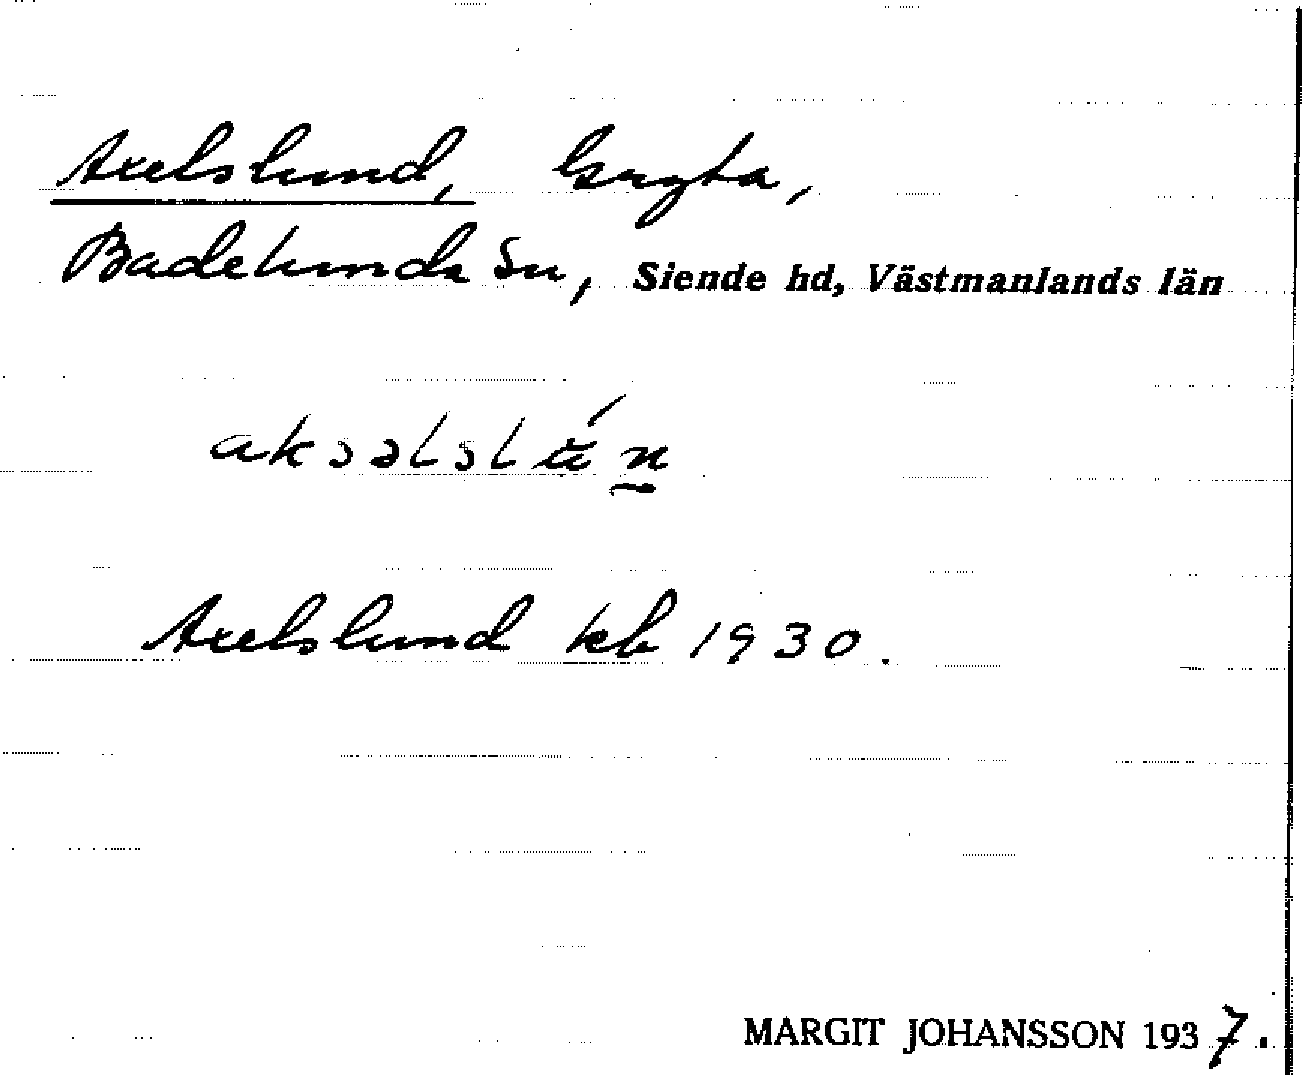 Axelslund, Gryta,
Badelunda sn, Siende hd, Västmanlands län
Axelslund kb 1930.
MARGIT JOHANSSON 1937.